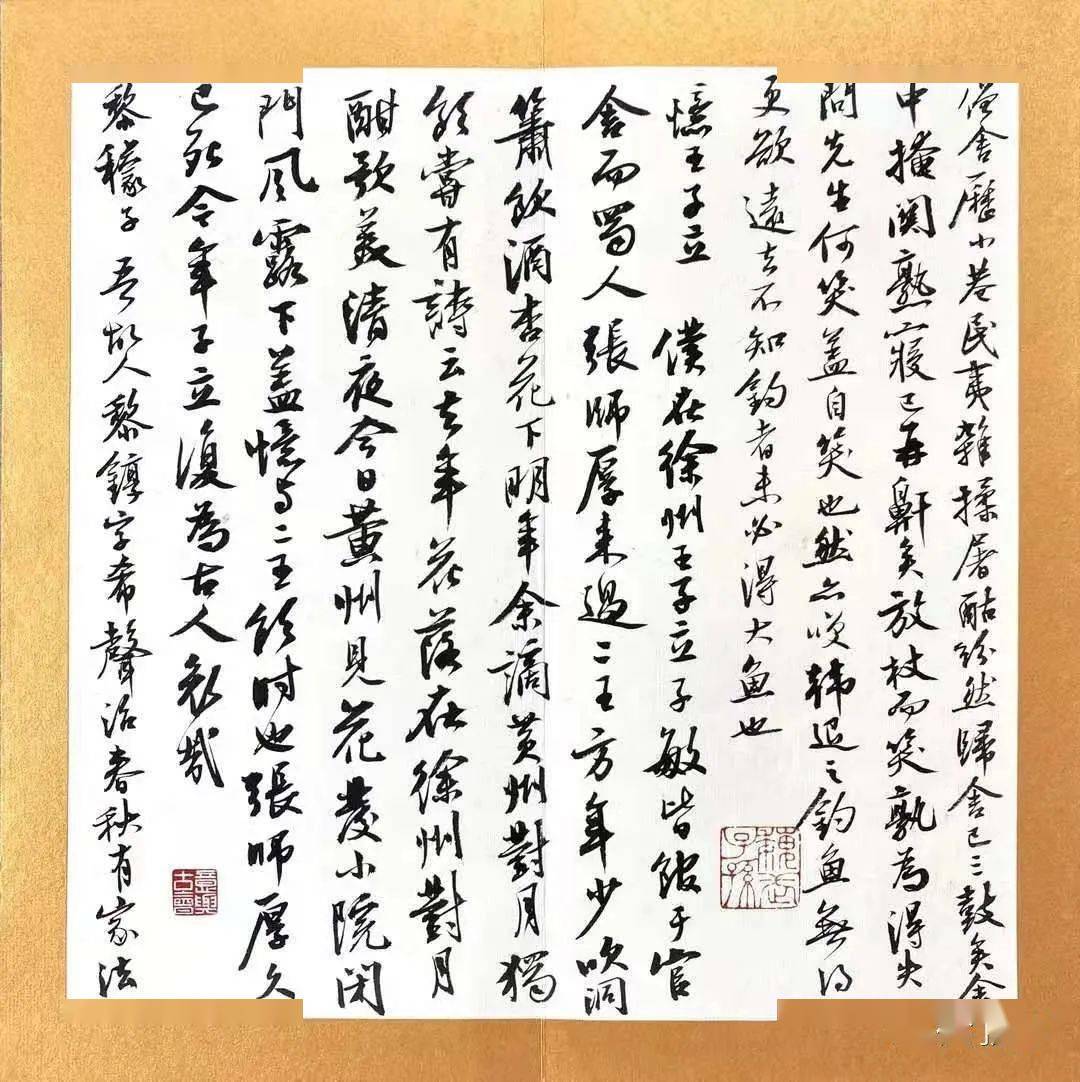 僧舍歷小巷民夷雜揉屠酤紛然歸舍已三鼓矣舍
中掩關熟寢已再鼾矣放杖而笑孰為得失
問先生何笑蓋自笑也然亦笑韓退之釣魚無得
更欲遠去不知釣者未必得大魚也
憶王子立 僕在徐州王子立子敏皆館于官
舍而蜀人張師厚來過二王方年少吹洞
簫飲酒杏花下明年余謫黃州對月獨
飲嘗有詩云去年花落在徐州對月
酣歌美清夜今日黃州見花發小院閉
門風露下蓋憶與二王飲時也張師厚久
已死今年子立復為古人哀哉
黎檬子 吾故人黎錞字希聲治春秋有家法